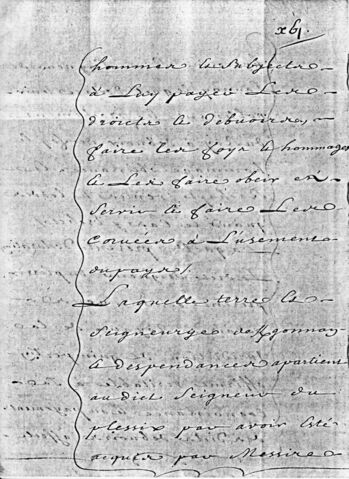 xbj.
hommes & subjectz
à Luy payer Les
droicts & debuoirs,
faire les foys & hommages
& Les faire obeir en
servir & faire Les
corvées à L'usement
du pays /.
Laquelle terre &
seigneurye de
& despendances apartient
au dict Seigneur du
plessix par avoir Esté
acquis par Messire